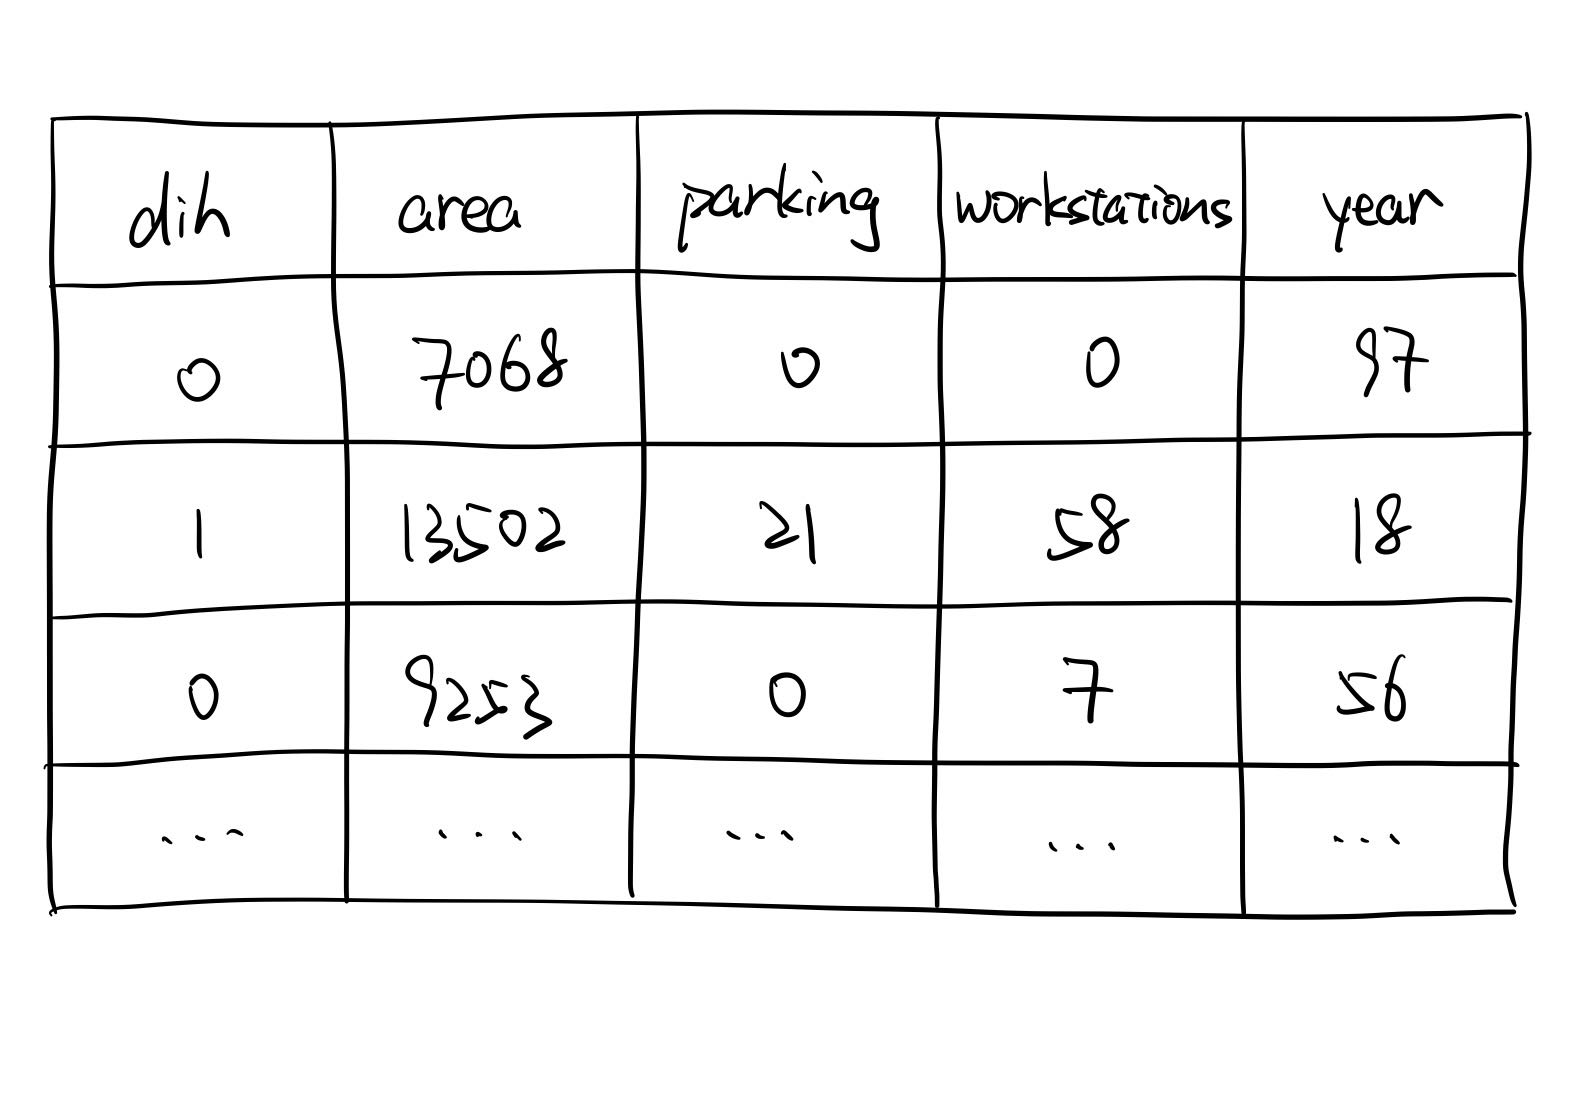 dih area parking workstations year
0 7068 0 0 97
1 13502 21 58 18
0 9253 0 7 56
... ... ... ... ...